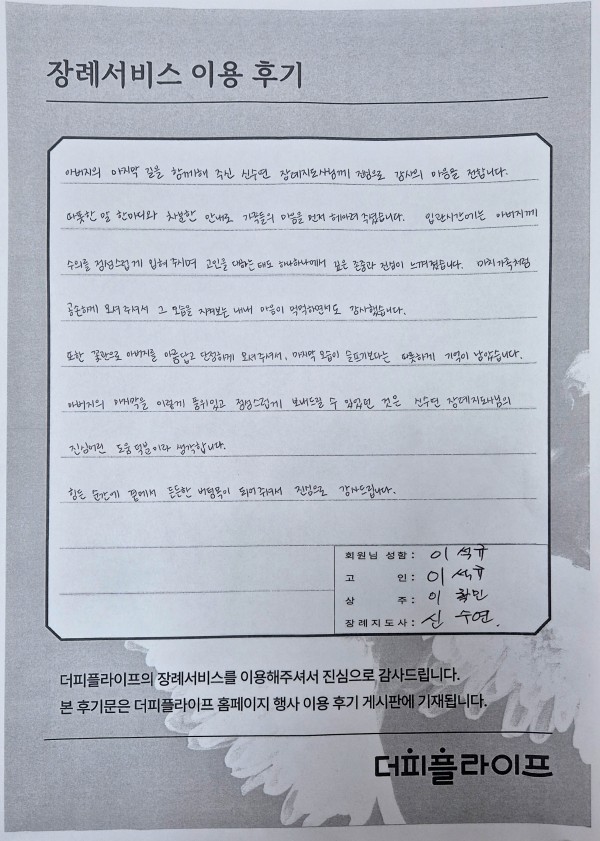 장례서비스 이용 후기
아버지의 마지막 길을 함께해 주신 신수연 장례지도사님께 진심으로 감사의 마음을 전합니다.
따뜻한 말 한마디와 차분한 안내로 가족들의 마음을 먼저 헤아려 주셨습니다. 입관시간에는 아버지께
수의를 정성스럽게 입혀 주시며 고인을 대하는 태도 하나하나에서 깊은 존중과 진심이 느껴졌습니다. 마치 가족처럼
공손하게 모셔 주셔서 그 모습을 지켜보는 내내 마음이 먹먹하면서도 감사했습니다.
또한 꽃관으로 아버지를 아름답고 단정하게 모셔주셔서, 마지막 모습이 슬프기보다는 따뜻하게 기억이 남았습니다.
아버지의 마지막을 이렇게 품위있고 정성스럽게 보내드릴 수 있었던 것은 신수연 장례지도사님의
진심어린 도움 덕분이라 생각합니다.
힘든 순간에 곁에서 든든한 버팀목이 되어주셔서 진심으로 감사드립니다.
회원님 성함 : 이석규
고 인 : 이석규
상 주 : 이확민
장례지도사 : 신수연.
더피플라이프의 장례서비스를 이용해주셔서 진심으로 감사드립니다.
본 후기문은 더피플라이프 홈페이지 행사 이용 후기 게시판에 기재됩니다.
더피플라이프